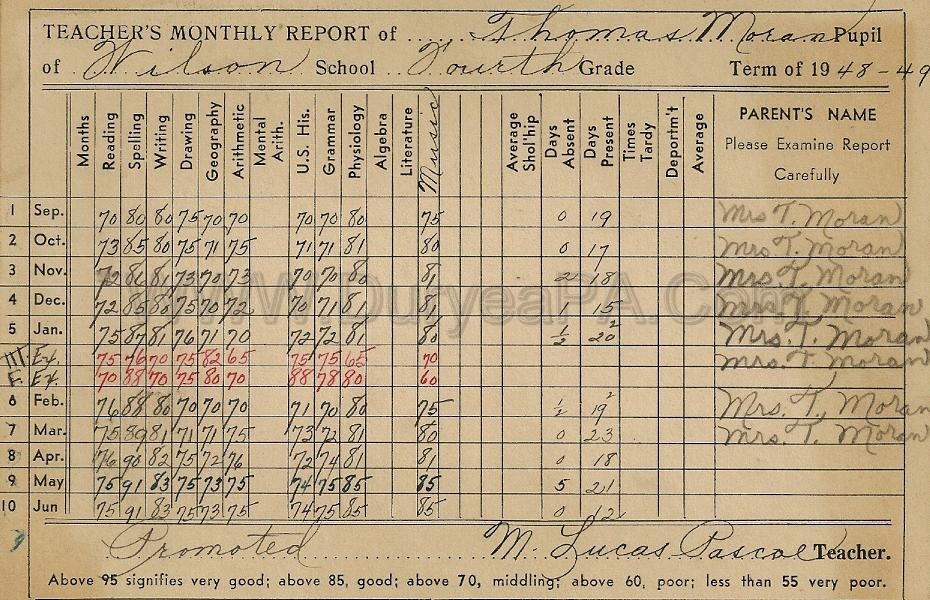 TEACHER'S MONTHLY REPORT of Thomas Moran Pupil
of Wilson School Fourth Grade Term of 1948-49
Months Reading Spelling Writing Drawing Geography Arithmetic Mental Arith. U.S. His. Grammar Physiology Algebra Literature Music Average Shol'hip Days Absent Days Present Times Tardy Deportm't Average PARENT'S NAME
Please Examine Report
Carefully
1 Sep. 70 80 80 75 70 70 70 70 80 75 0 19 Mrs T. Moran
2 Oct. 73 85 80 75 71 75 71 71 81 80 0 17 Mrs T. Moran
3 Nov. 72 86 81 73 70 73 70 70 80 81 2 18 Mrs. T. Moran
4 Dec. 72 85 80 75 70 72 70 71 81 81 1 15 Mrs T. Moran
5 Jan. 75 87 81 76 71 70 72 72 81 80 ½ 20½ Mrs. T. Moran
III Ex. 75 76 70 75 82 65 75 75 65 70 Mrs. T Moran
E Ex. 70 88 70 75 80 70 88 78 80 60
6 Feb. 76 88 80 70 70 70 71 70 80 75 ½ 19½ Mrs. T. Moran
7 Mar. 75 89 81 71 71 75 73 72 81 80 0 23 Mrs. T. Moran
8 Apr. 76 90 82 75 72 76 72 74 81 81 0 18
9 May 75 91 83 75 73 75 74 75 85 85 5 21
10 Jun 75 91 83 75 73 75 74 75 85 85 0 12
Promoted M. Lucas Pascoe Teacher.
Above 95 signifies very good; above 85, good; above 70, middling; above 60, poor; less than 55 very poor.
www.DuryeaPA.Com